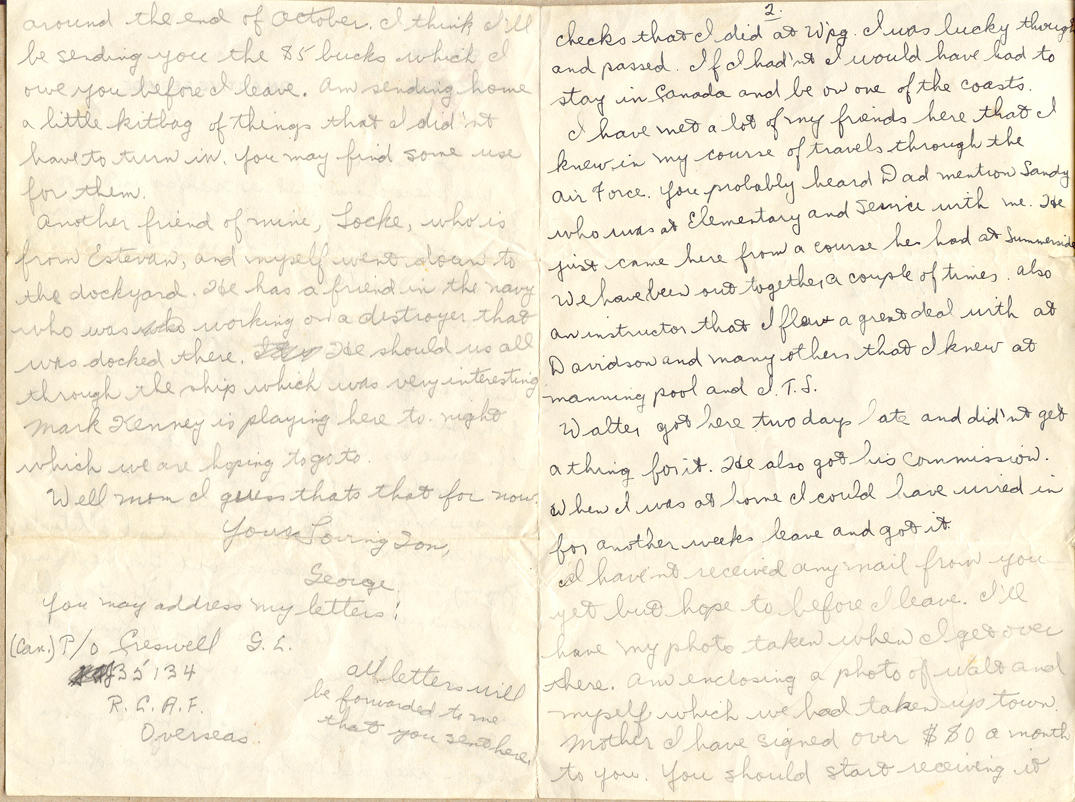 2.
checks that I did at Wpg. I was lucky though
and passed. If I had'nt I would have had to
stay in Canada and be on one of the coasts.
I have met a lot of my friends here that I
knew in my course of travels through the
Air Force. You probably heard Dad mention Sandy
who was at Elementary and Service with me. He
just came here from a course he's had at Summerside
We have been out together a couple of times. also
an instructor that I flew a great deal with at
Davidson and many others that I knew at
manning pool and I.T.S.
Walter got here two days late and did'nt get
a thing for it. He also got his Commission.
When I was at home I could have wired in
for another weeks leave and got it
I have'nt received any mail from you
yet but hope to before I leave. I'll
have my photo taken when I get over
there. Am enclosing a photo of Walt and
myself which we had taken up town.
Mother I have signed over $80 a month
to you. You should start receiving it
around the end of October. I think I'll
be sending you the $5 bucks which I
owe you before I leave. Am sending home
a little kitbag of things that I did'nt
have to turn in. You may find some use
for them.
Another friend of mine, Locke, who is
from Estevan, and myself went down to
the dockyard. He has a friend in the navy
who was working on a destroyer that
was docked there. He should us all
through the ship which was very interesting
Mark Kenney is playing here to-night
which we are hoping to go to.
Well mom I guess thats that for now.
Your Loving Son,
George
You may address my letters!
(Can.) P/O Creswell G. E.
J35134
R.C.A.F.
Overseas.
all letters will
be forwarded to me
that you sent here.